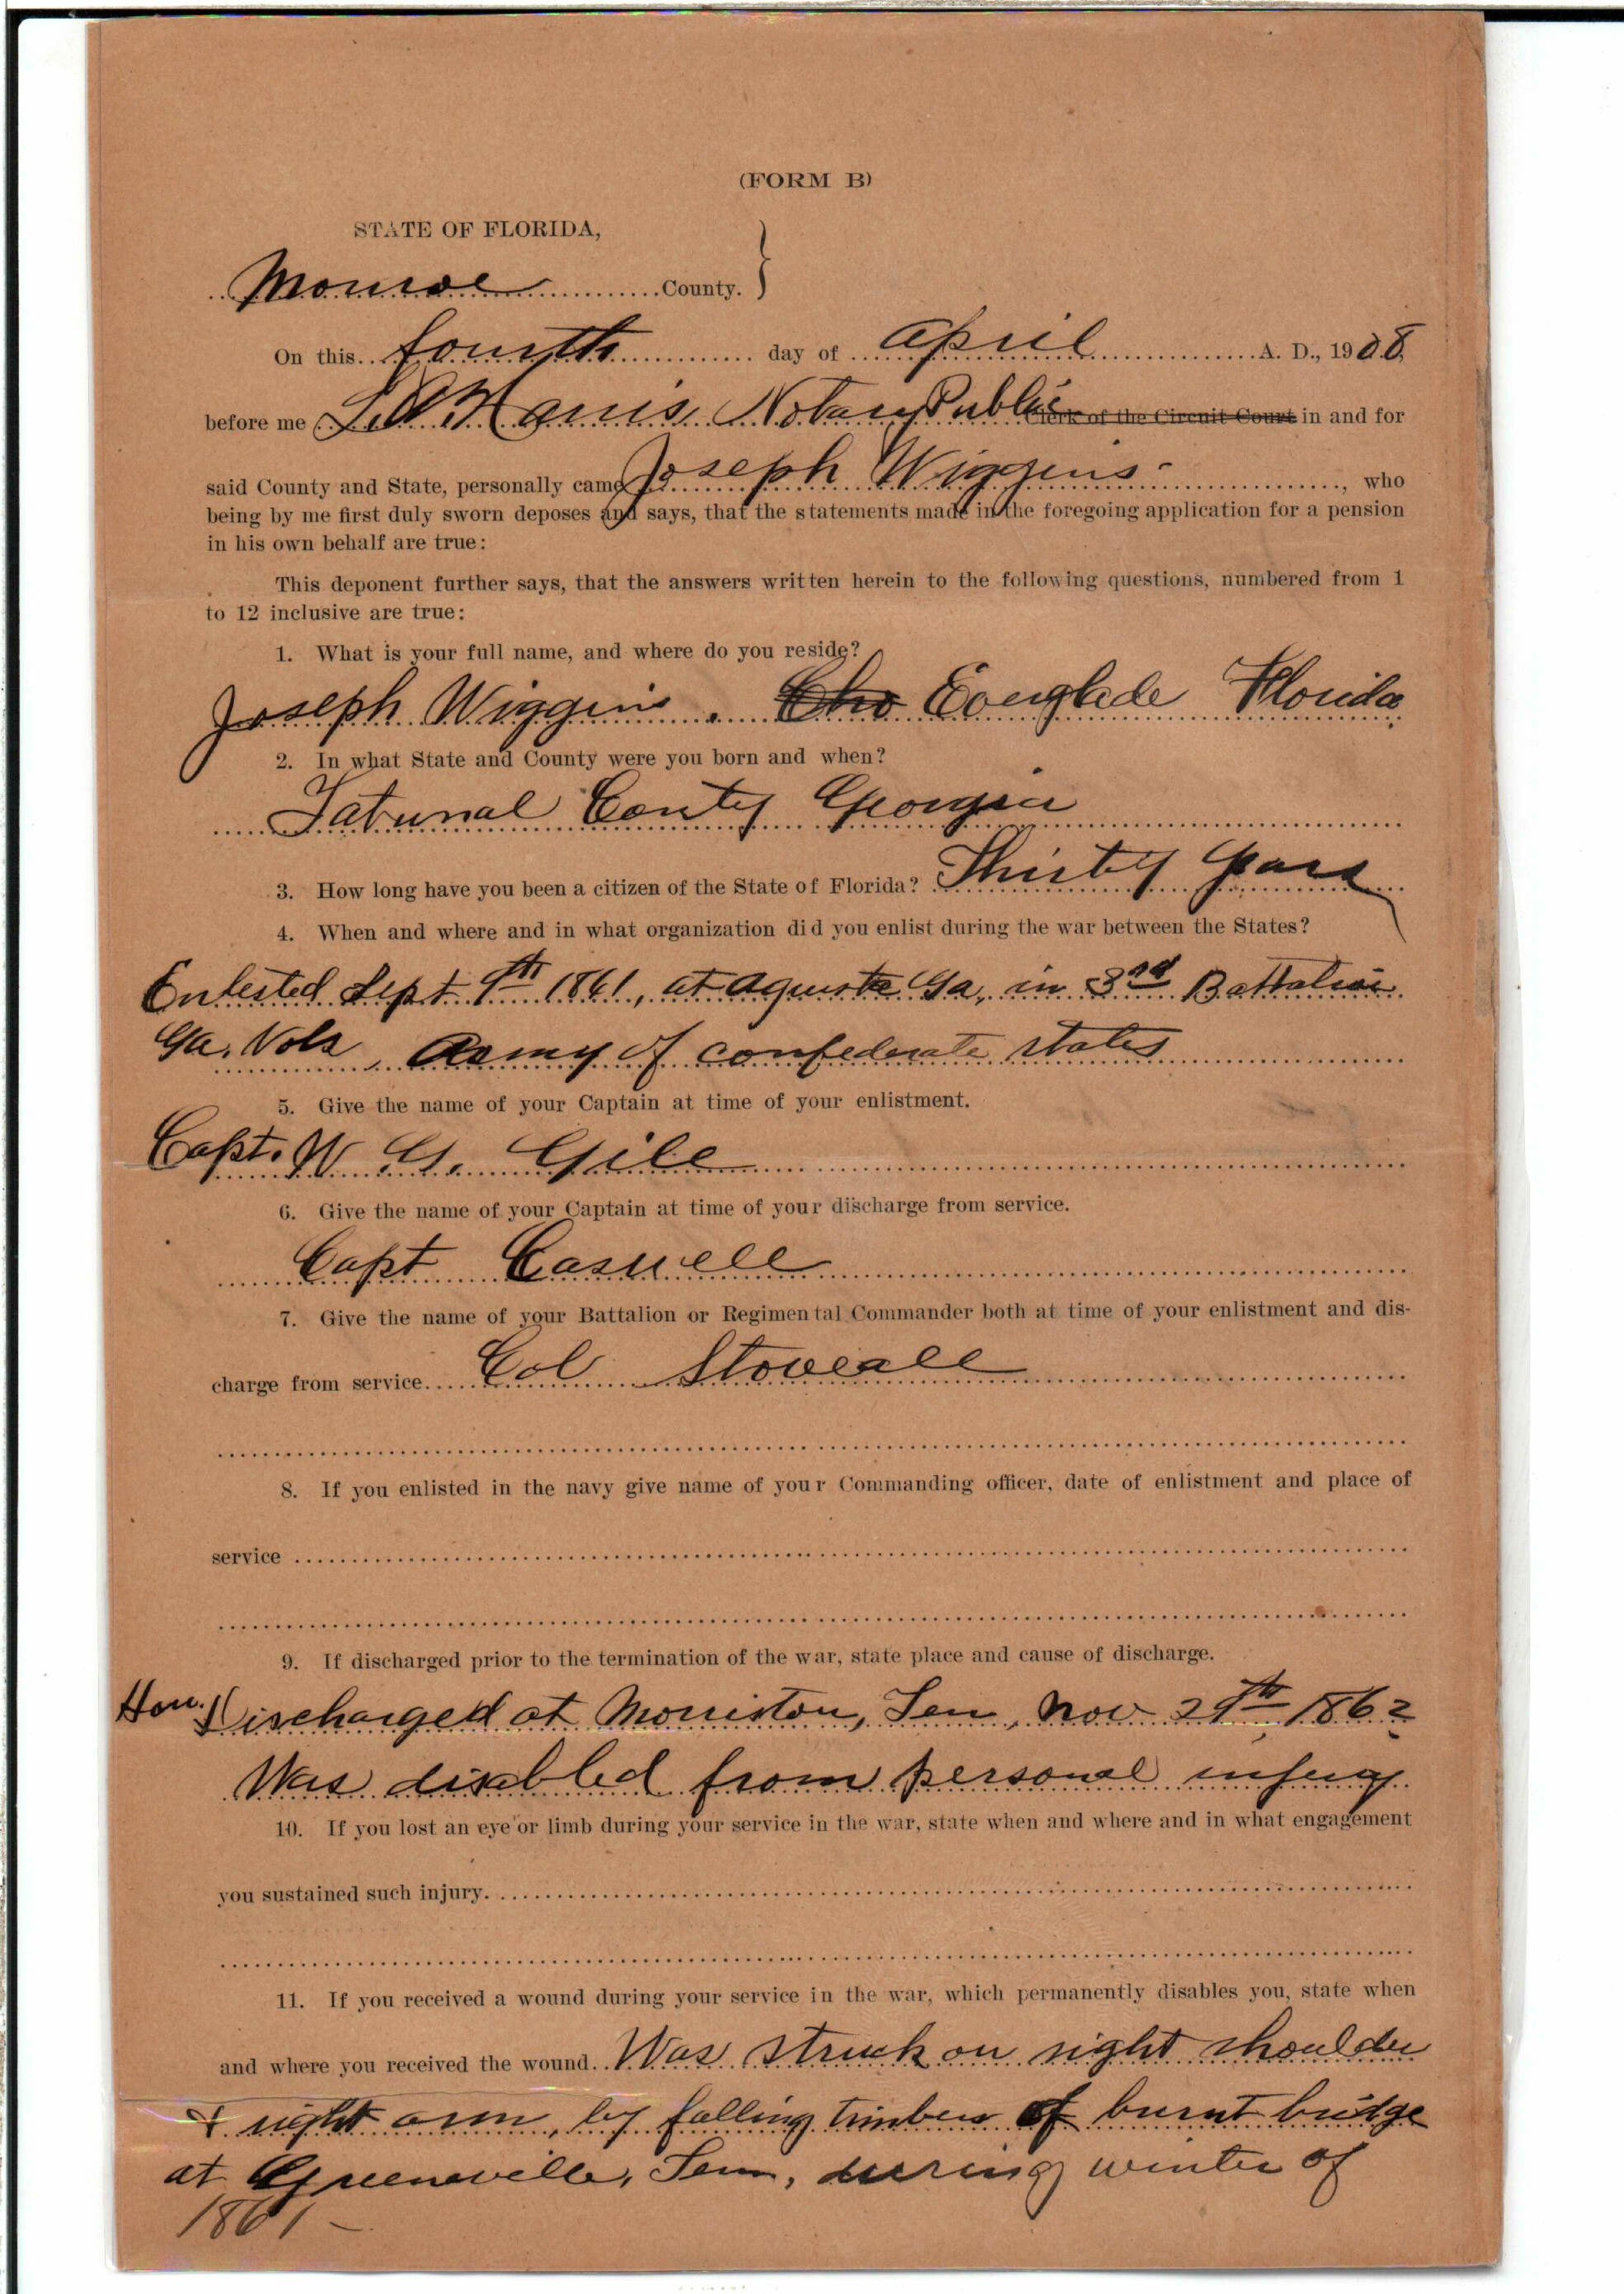 (FORM B)
STATE OF FLORIDA,
Monroe County. }
On this fourth day of April A. D., 1908,
before me Harris, Notary Public Clerk of the Circuit Court in and for
said County and State, personally came Joseph Wiggins, who
being by me first duly sworn deposes and says, that the statements made in the foregoing application for a pension
in his own behalf are true:
This deponent further says, that the answers written herein to the following questions, numbered from 1
to 12 inclusive are true:
1. What is your full name, and where do you reside?
Joseph Wiggins. Cho Everglade Florida
2. In what State and County were you born and when?
Tatunal Conty Georgia
3. How long have you been a citizen of the State of Florida? Thirty years
4. When and where and in what organization did you enlist during the war between the States?
Enlested Sept. 9th 1861, at Agusta Ga, in 3rd Battalion
Ga. Vols, Army of confederate states
5. Give the name of your Captain at time of your enlistment.
Capt. W. G. Gill
6. Give the name of your Captain at time of your discharge from service.
Capt Caswell
7. Give the name of your Battalion or Regimental Commander both at time of your enlistment and dis-
charge from service. Col Stoveall
8. If you enlisted in the navy give name of your Commanding officer, date of enlistment and place of
service
9. If discharged prior to the termination of the war, state place and cause of discharge.
Hon. Discharged at Morriston, Ten, Nov 29th 1862
Was disabled from personal injury
10. If you lost an eye or limb during your service in the war, state when and where and in what engagement
you sustained such injury.
11. If you received a wound during your service in the war, which permanently disables you, state when
and where you received the wound. Was struck on right shoulder
& right arm, by falling timbers of burnt bridge
at Greeneville, Tenn, during winter of
1861 –